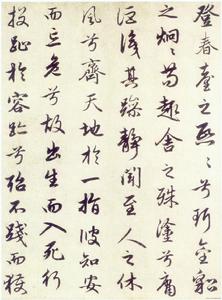 登春臺之熙〻兮珥金貂
之炯〻苟趣舍之殊塗兮庸
詎識其躁靜聞至人之休
風兮齊天地於一指彼知安
而忘危兮故出生而入死行
投趾於容跡兮殆不踐而獲